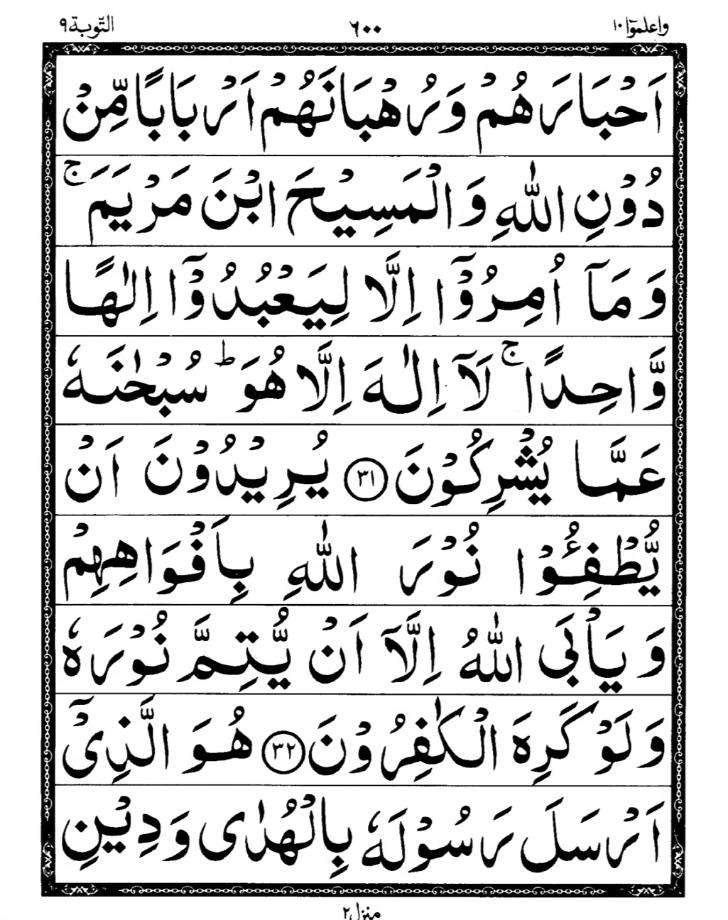 واعلموٓا ١٠ ٦٠٠ التّوبة ٩
اَحْبَارَهُمْ وَرُهْبَانَهُمْ اَرْبَابًا مِّنْ
دُوْنِ اللّٰهِ وَالْمَسِيْحَ ابْنَ مَرْيَمَ ۚ
وَمَاۤ اُمِرُوْۤا اِلَّا لِيَعْبُدُوْۤا اِلٰهًا
وَّاحِدًا ۚ لَاۤ اِلٰهَ اِلَّا هُوَ ؕ سُبْحٰنَهٗ
عَمَّا يُشْرِكُوْنَ ﴿٣١﴾ يُرِيْدُوْنَ اَنْ
يُّطْفِـُٔوْا نُوْرَ اللّٰهِ بِاَفْوَاهِهِمْ
وَيَاْبَى اللّٰهُ اِلَّاۤ اَنْ يُّتِمَّ نُوْرَهٗ
وَلَوْ كَرِهَ الْكٰفِرُوْنَ ﴿٣٢﴾ هُوَ الَّذِيْۤ
اَرْسَلَ رَسُوْلَهٗ بِالْهُدٰى وَدِيْنِ
منزل ٢